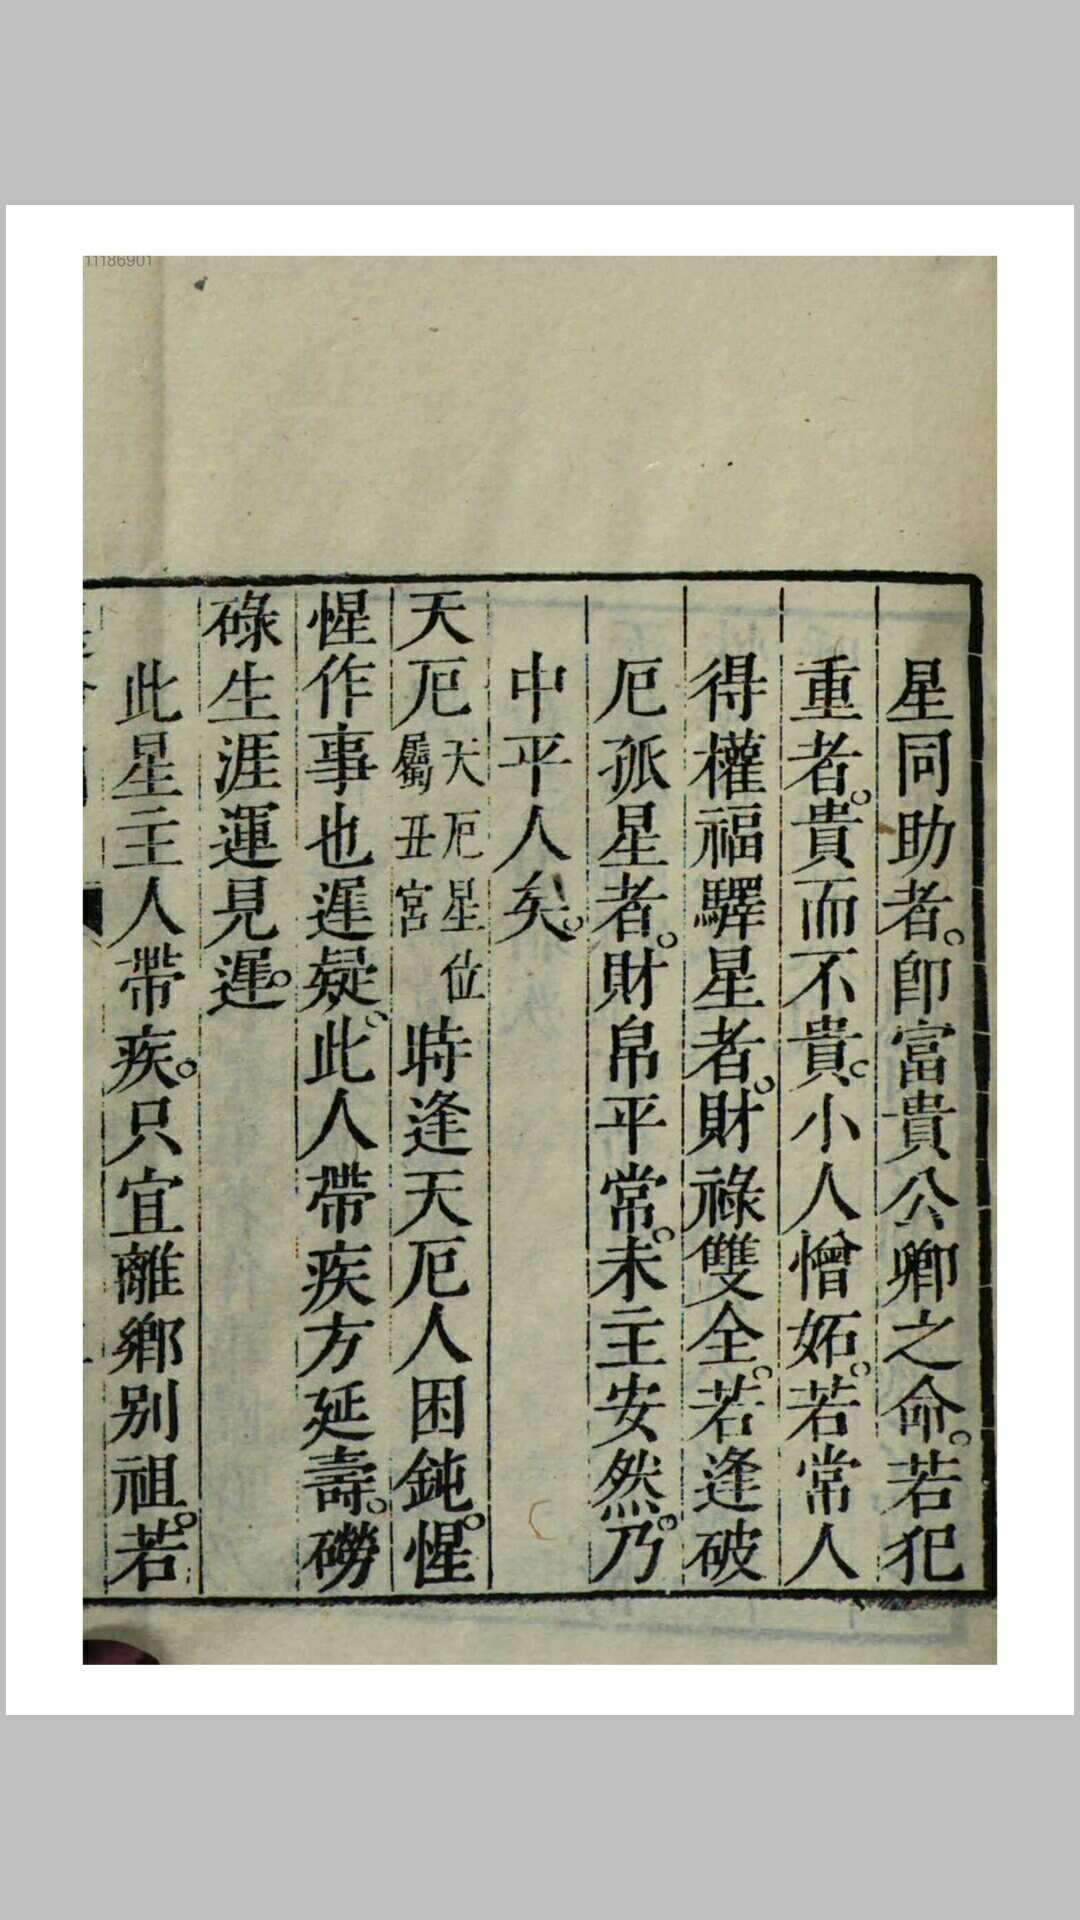 11186901
星同助者。即富貴公卿之命。若犯
重者。貴而不貴。小人憎妬。若常人
得權福驛星者。財祿雙全。若逢破
厄孤星者。財帛平常。未主安然。乃
中平人矣。
天厄天厄星位屬丑宮時逢天厄人困鈍。惺
惺作事也遲疑。此人帶疾方延壽。磱
磟生涯運見遲。
此星主人帶疾。只宜離鄉别祖。若